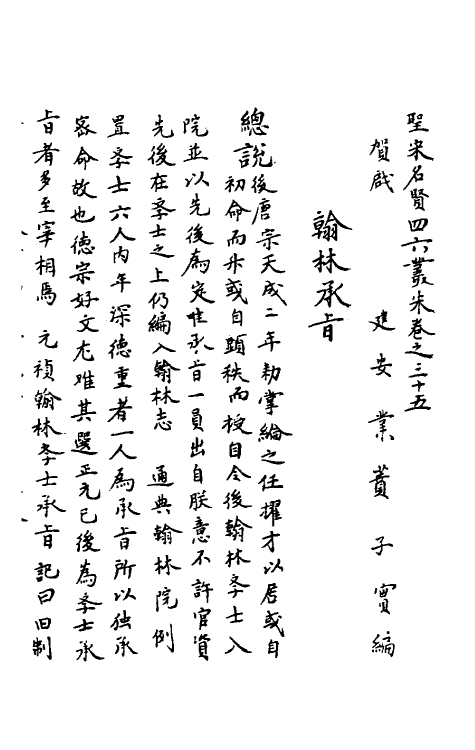 聖宋名賢四六叢朱卷之三十五
賀啟
建安葉蕡子實編
翰林承旨
總說後唐宗天成二年勑掌綸之任擢才以居或自
初命而升或自顯秩而授自今後翰林孝士入
院並以先後為定惟承旨一員出自朕意不許官資
先後在孝士之上仍編入翰林志 通典翰林院例
置孝士六人内年深德重者一人為承旨所以独承
密命故也德宗好文尤难其選正元已後為孝士承
旨者多至宰相焉 元禎翰林孝士承旨記曰旧制